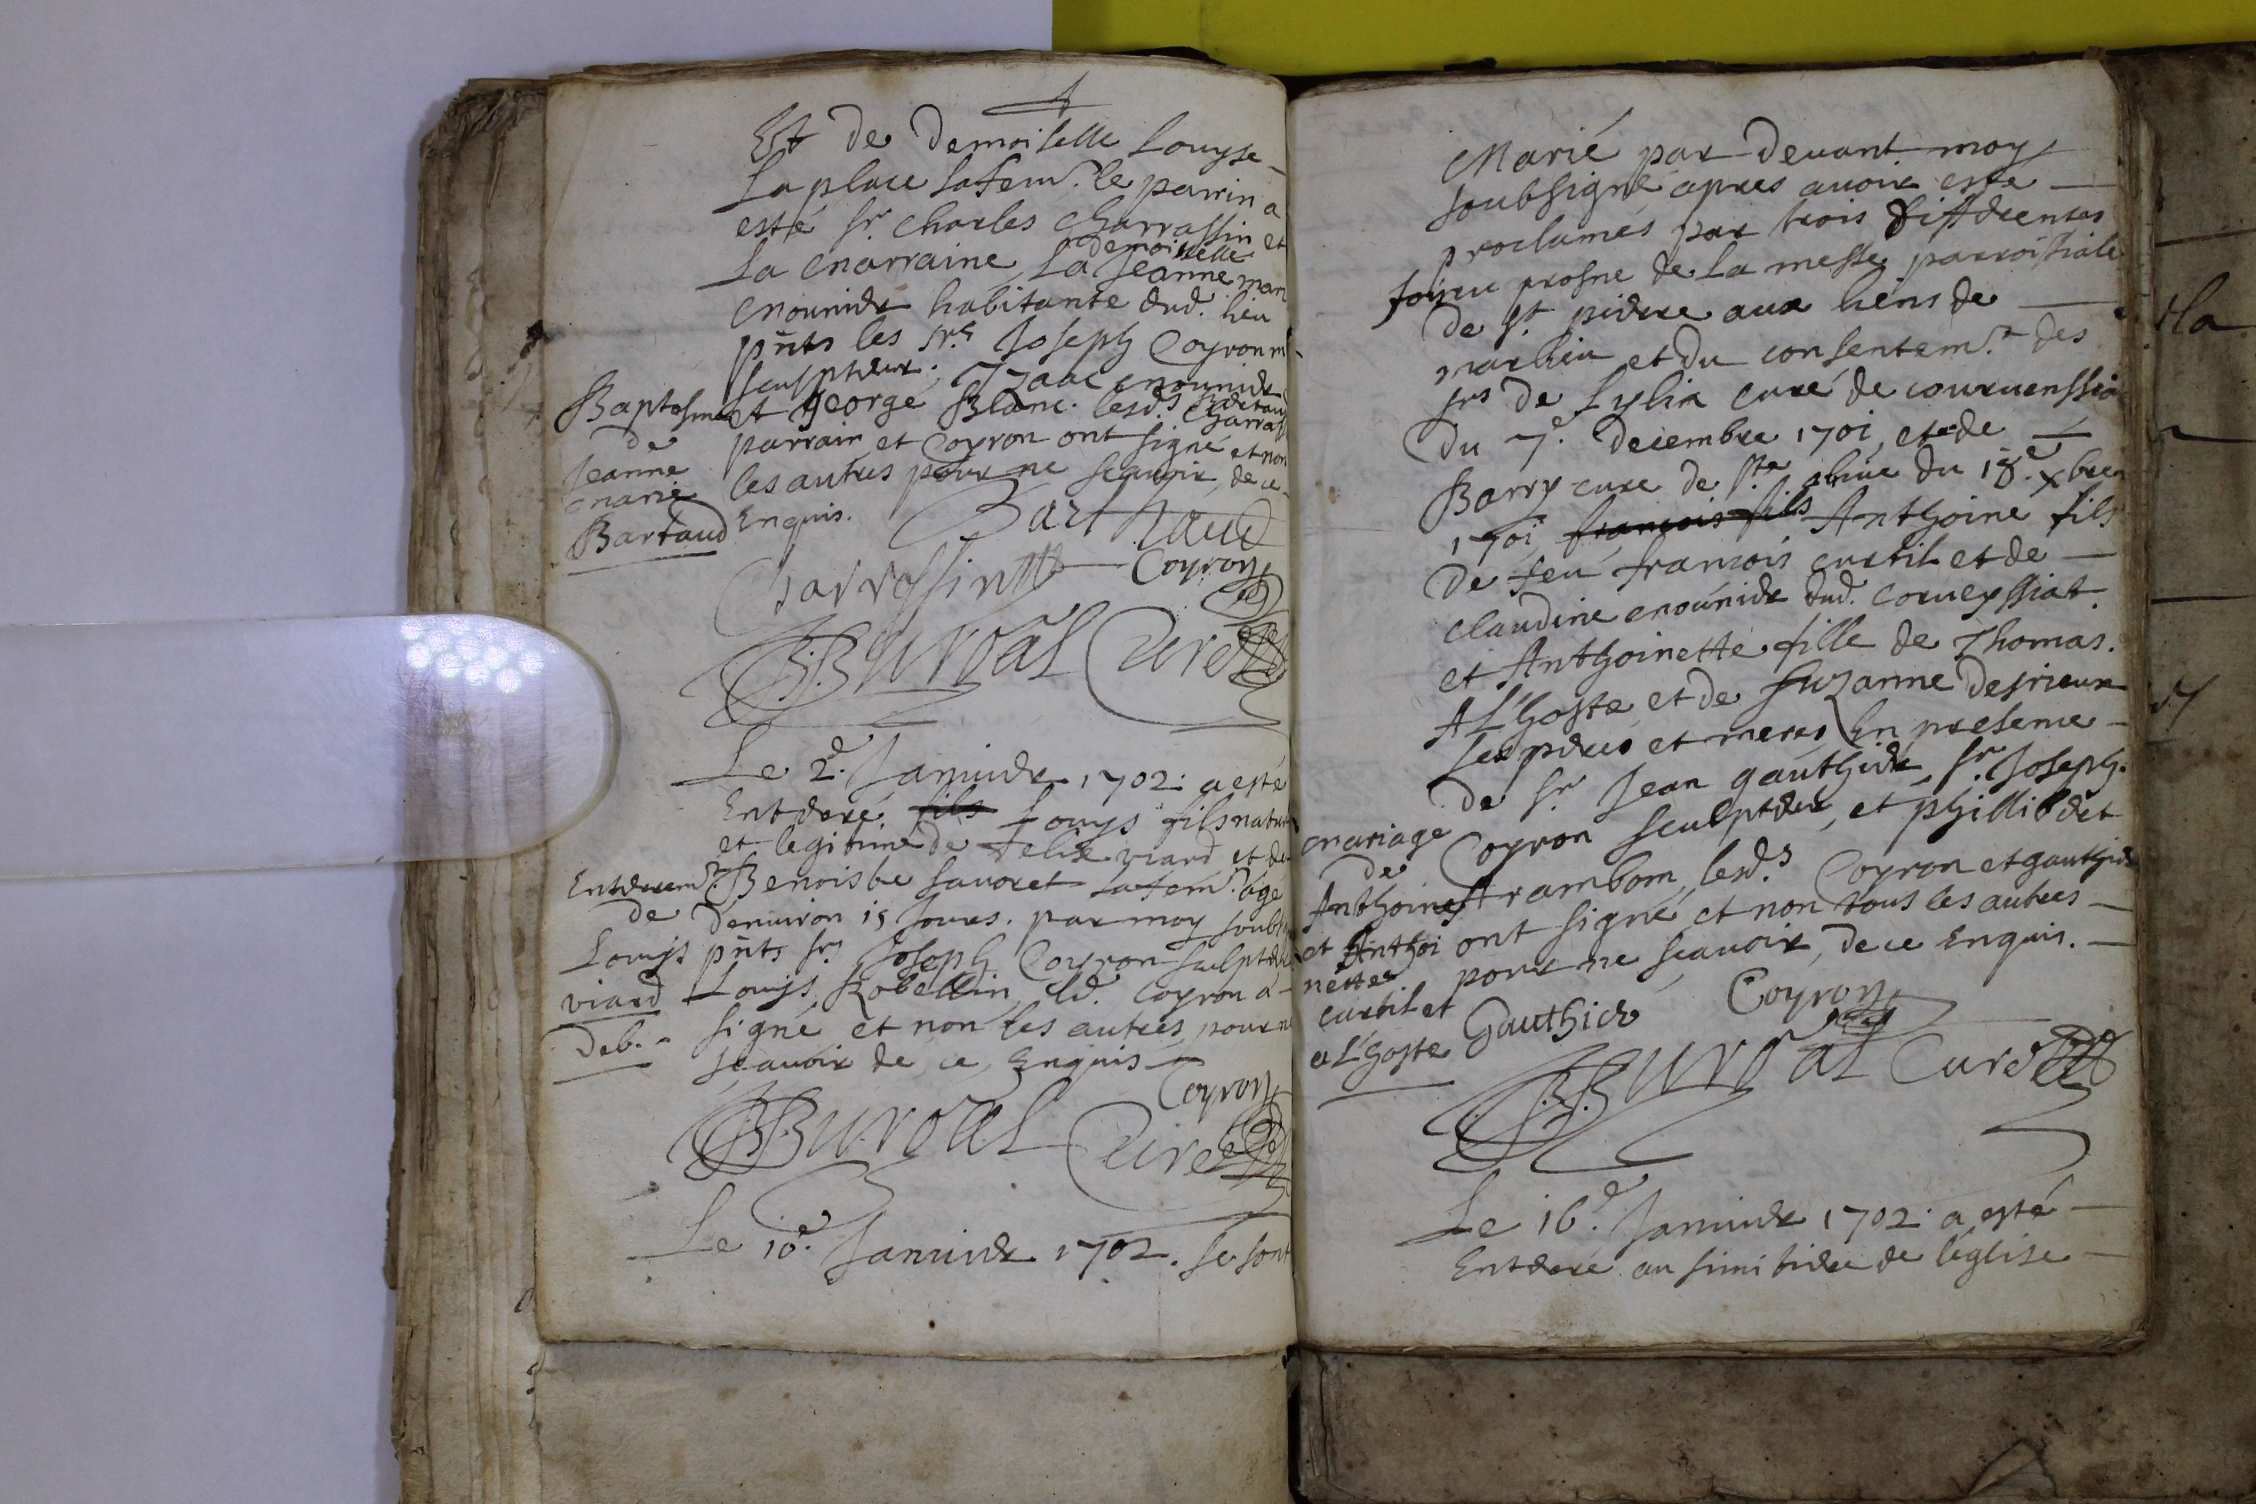 Est de Demoiselle Louyse
Laplace sa fem.e le parrin a
esté sr. Charles Charrassin et
La marraine La demoiselle Jeanne mari
mounier habitante dud. lieu
pnts les srs Joseph Coyron mr
sculpteur, Yzaac mounier
et george Blanc. lesd.s
parrain et Coyron ont signé et non
les autres pour ne scavoir, de ce
Enquis.
Baptesme
de
Jeanne
marie
Bartaud
Barthaud
Charrassin
Coyron
BBurdal Curé
Le 2e. Januier 1702. a esté
Enterré fils Louys fils natur
et legitime de felix viard et de
Benoiste sauoret sa fem.e agé
d'enuiron 15 Jours. par moy soubs
pnts sr Joseph Coyron sculpteur
Louys Robellin, led. Coyron a
signé et non les autres pour ne
scauoir de ce Enquis
Enterrem.t
de
Louys
viard
Deb.
Coyron
BBurdal Curé
Le 10e. Januier 1702. se sont
Marié par deuant moy
soubsigné apres auoir esté
proclamés par trois differentes
fois au prosne de la messe parroissiale
de st. pierre aux liens de
marlieu et du consentem.t des
srs de Lylia curé de
du 7e. decembre 1701, et de
Barry cure de ste. du 18e. xbre
1701, francois fils Anthoine fils
De feu francois curtil et de
claudine mounier dud. corueyssiat
et Anthoinette fille de Thomas
A L'hoste et de Suzanne desrieux
ses peres et meres En presence
de sr Jean gauthier, sr Joseph
Coyron sculpteur, et phillibert
Arambom, lesd.s Coyron et gauthier
ont signé et non tous les autres
pour ne scauoir, de ce Enquis.
mariage
de
Anthoine
et Anthoi
nette
curtil et
a L'hoste
Gauthier
Coyron
BBurdal Curé
Le 16e. Januier 1702. a esté
Enterré au simitiere de l'église